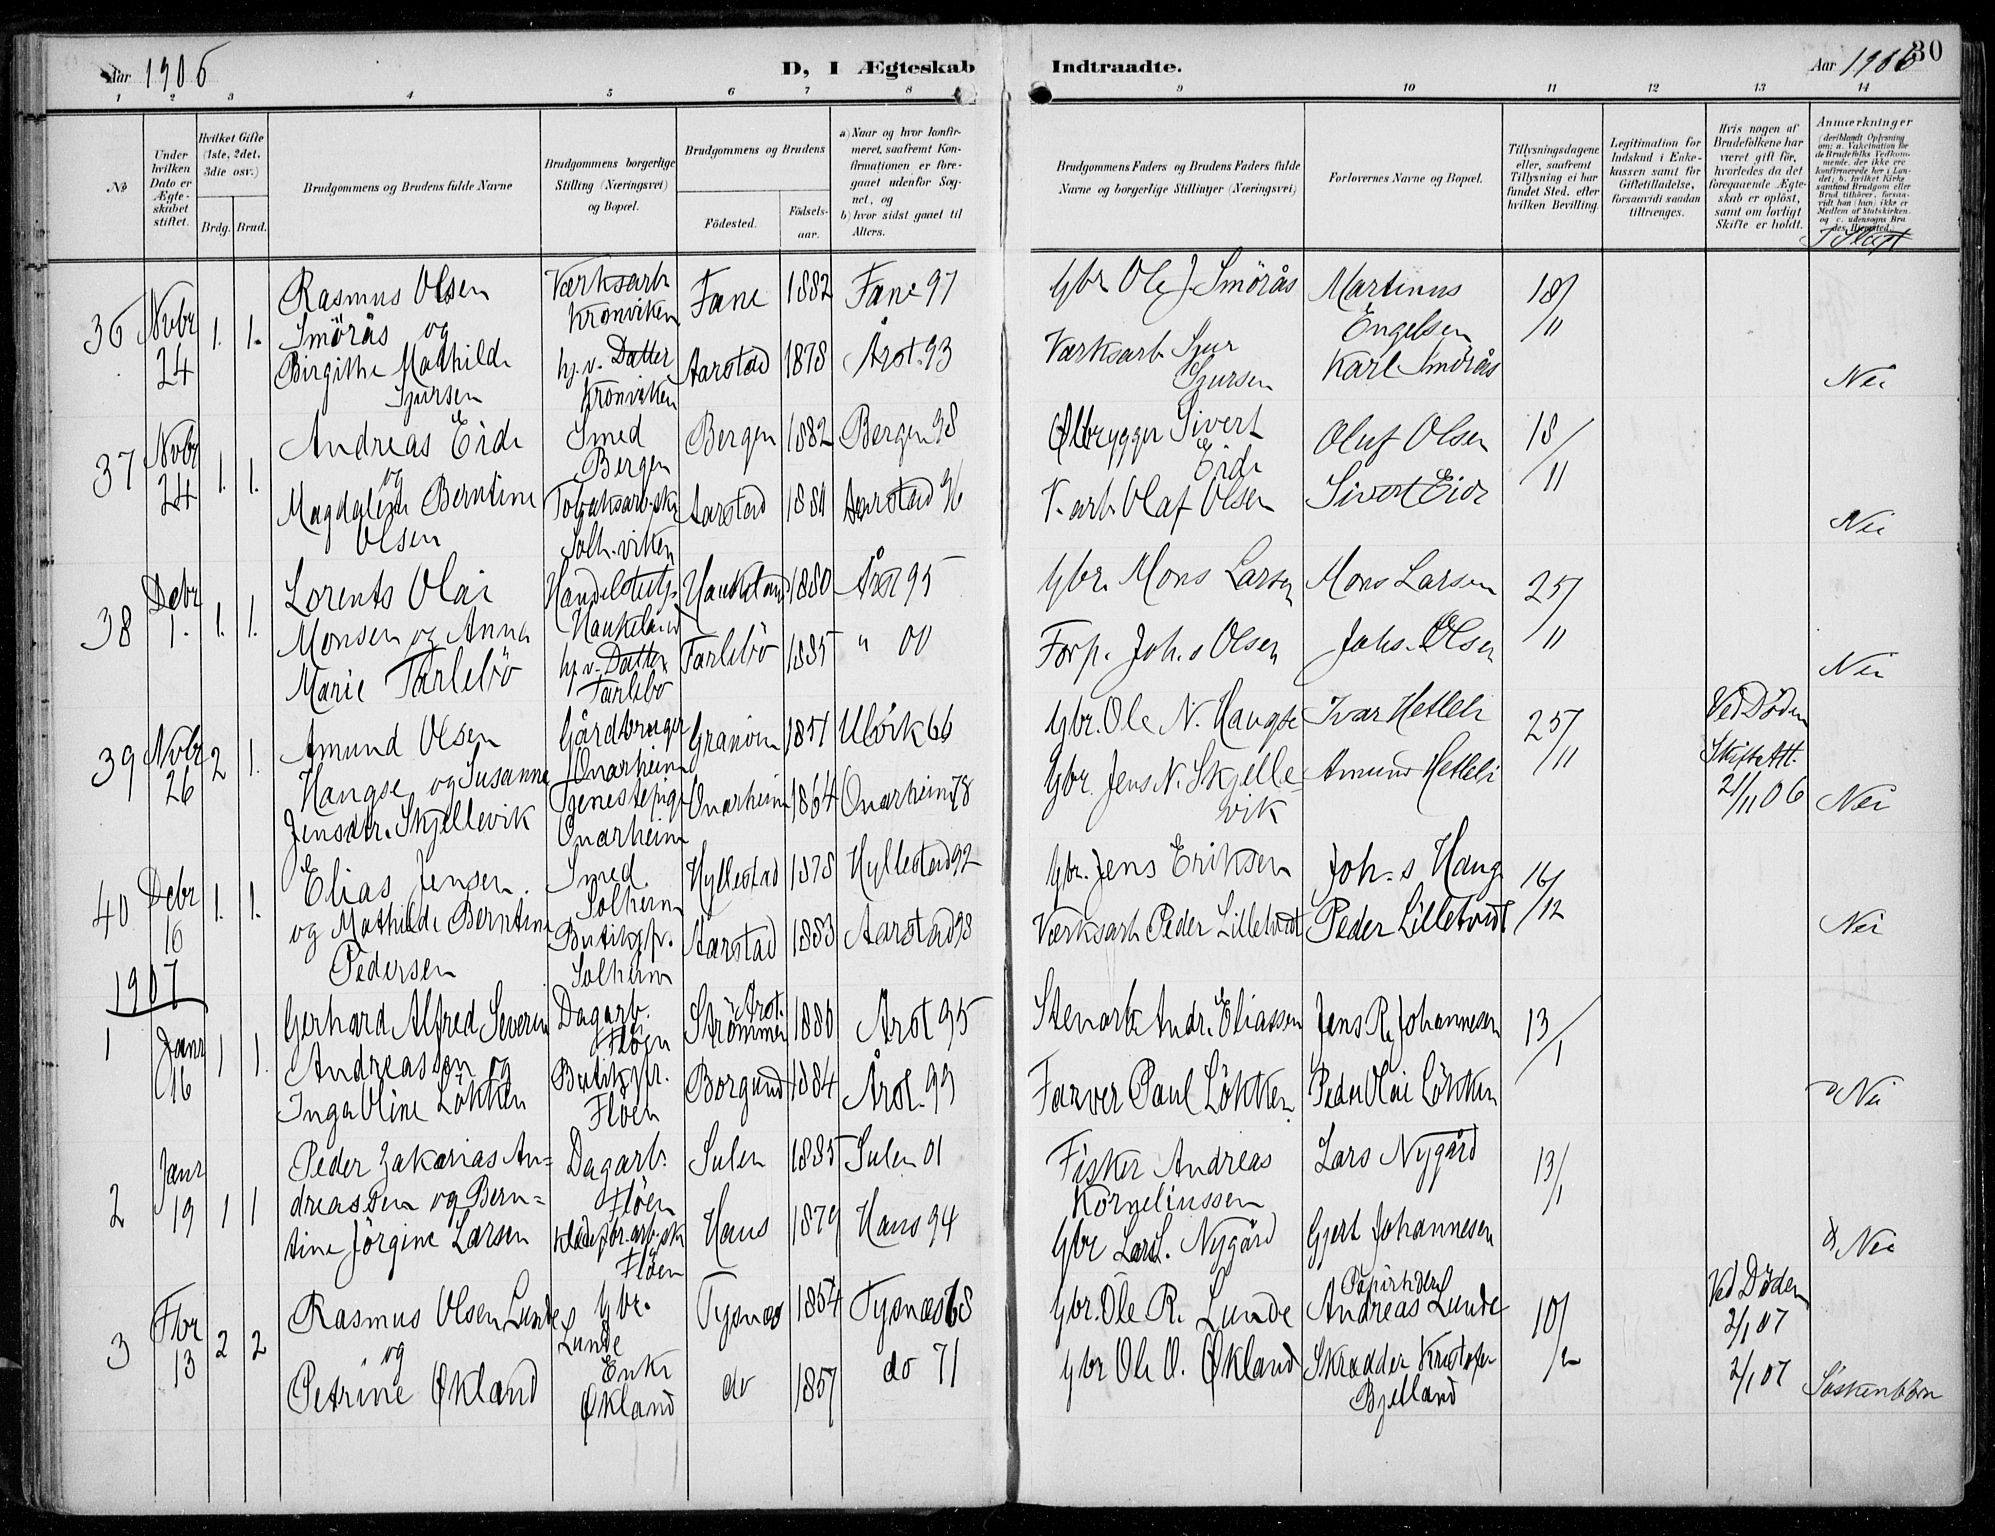 Aar 1906
D, I Ægteskab
Indtraadte.
Aar 1906
30
1 2 3 4 5 6 7 8 9 10 11 12 13 14
No
Under hvilken Dato er Ægteskabet stiftet.
Hvilket Gifte (1ste, 2det, 3die osv.)
Brdg. Brud.
Brudgommens og Brudens fulde Navne
Brudgommens borgerlige Stilling (Næringsvei) og Bopæl.
Brudgommens og Brudens
Födested.
Födselsaar.
a) Naar og hvor konfirmeret, saafremt Konfirmationen er foregaaet udenfor Sognet, og
b) hvor sidst gaaet til Alters.
Brudgommens Faders og Brudens Faders fulde Navne og borgerlige Stillinger (Næringsvei)
Forlovernes Navne og Bopæl.
Tillysningsdagene eller, saafremt Tillysning ei har fundet Sted, efter hvilken Bevilling.
Legitimation for Indskud i Enkekassen samt for Giftetilladelse, forsaavidt saadan tiltrænges.
Hvis nogen af Brudefolkene har været gift för, hvorledes da det foregaaende Ægteskab er oplöst, samt om lovligt Skifte er holdt.
Anmærkninger
36 Novbr 24 1. 1.
Rasmus Olsen Smörås og
Værksarb. Kronviken
Fane 1882 Fane 97
Gbr Ole J Smörås
Martinus Engelsen
18/11
Birgithe Mathilde Sjursen
hj.v. Datter Kronviken
Aarstad 1878 Årst. 93
Værksarb. Sjur Sjursen
Karl Smörås
Nei
37 Novbr 24 1. 1.
Andreas Eide og
Smed Bergen
Bergen 1882 Bergen 98
Ølbrygger Sivert Eide
Oluf Olsen
18/11
Magdalene Berntine Olsen
Solh.viken
Aarstad 1881 Aarstad 96
V. arb. Olaf Olsen
Sivert Eide
Nei
38 Debr 1. 1. 1.
Lorents Olai Monsen og Anna
Haukeland
Haukeland 1880 Årst 95
Gbr. Mons Larsen
Mons Larsen
25/11
Marie Tarlebö
hj.v. Datter Tarlebö
Tarlebö 1885 " 00
Forp. Joh.s Olsen
Johs. Olsen
Nei
39 Novbr 26 2 1.
Amund Olsen Hangse og Susanne
Gårdbruger Onarheim
Granvin 1851 Ulvik 66
Gbr. Ole N. Hangse
Ivar Hetleli
25/11
Ved Döden
Skifteatt. 21/11 06
Jensdtr. Skjellevik
Tjenestepige Onarheim
Onarheim 1864 Onarheim 78
Gbr. Jens N. Skjellevik
Amund Hetleli
Nei
40 Debr 16 1. 1.
Elias Jensen
Smed Solheim
Hyllestad 1878 Hyllestad 92
Gbr. Jens Eriksen
Joh.s Haug
16/12
og Mathilde Berntine Pedersen
Butikpr. Solheim
Aarstad 1883 Aarstad 98
Værksarb. Peder Lilletvedt
Peder Lilletvedt
Nei
1907
1 Janr 16 1 1.
Gerhard Alfred Severin Andreassen og
Dagarb. Flöen
Strömmen Årst. 1880 Årst 95
Stenarb. Andr. Eliassen
Jens R. Johannesen
13/1
Inga Oline Løkken
Butikpr. Flöen
Borgund 1884 Årst. 99
Farver Paul Løkken
Peder Olai Løkken
Nei
2 Janr 19 1 1
Peder Zakarias An=
dreassen og Bern=
Dagarb. Flöen
Sulen 1885 Sulen 01
Fisker Andreas Kornelinssen
Lars Nygård
13/1
tine Jörgine Larsen
Flöen
Haus 1879 Haus 94
Gbr Lars L. Nygård
Gjert Johannesen
Nei
3 Fbr 13 2 2
Rasmus Olsen Lunde
og
Gbr. Lunde
Tysnæs 1854 Tysnæs 68
Gbr. Ole R. Lunde
Andreas Lunde
10/2
Ved Döden 2/1 07
Petrine Økland
Enke Økland
do 1857 do 71
Gbr Ole O. Økland
Skrædder Kristofer Bjelland
2/1 07
Söskenbörn